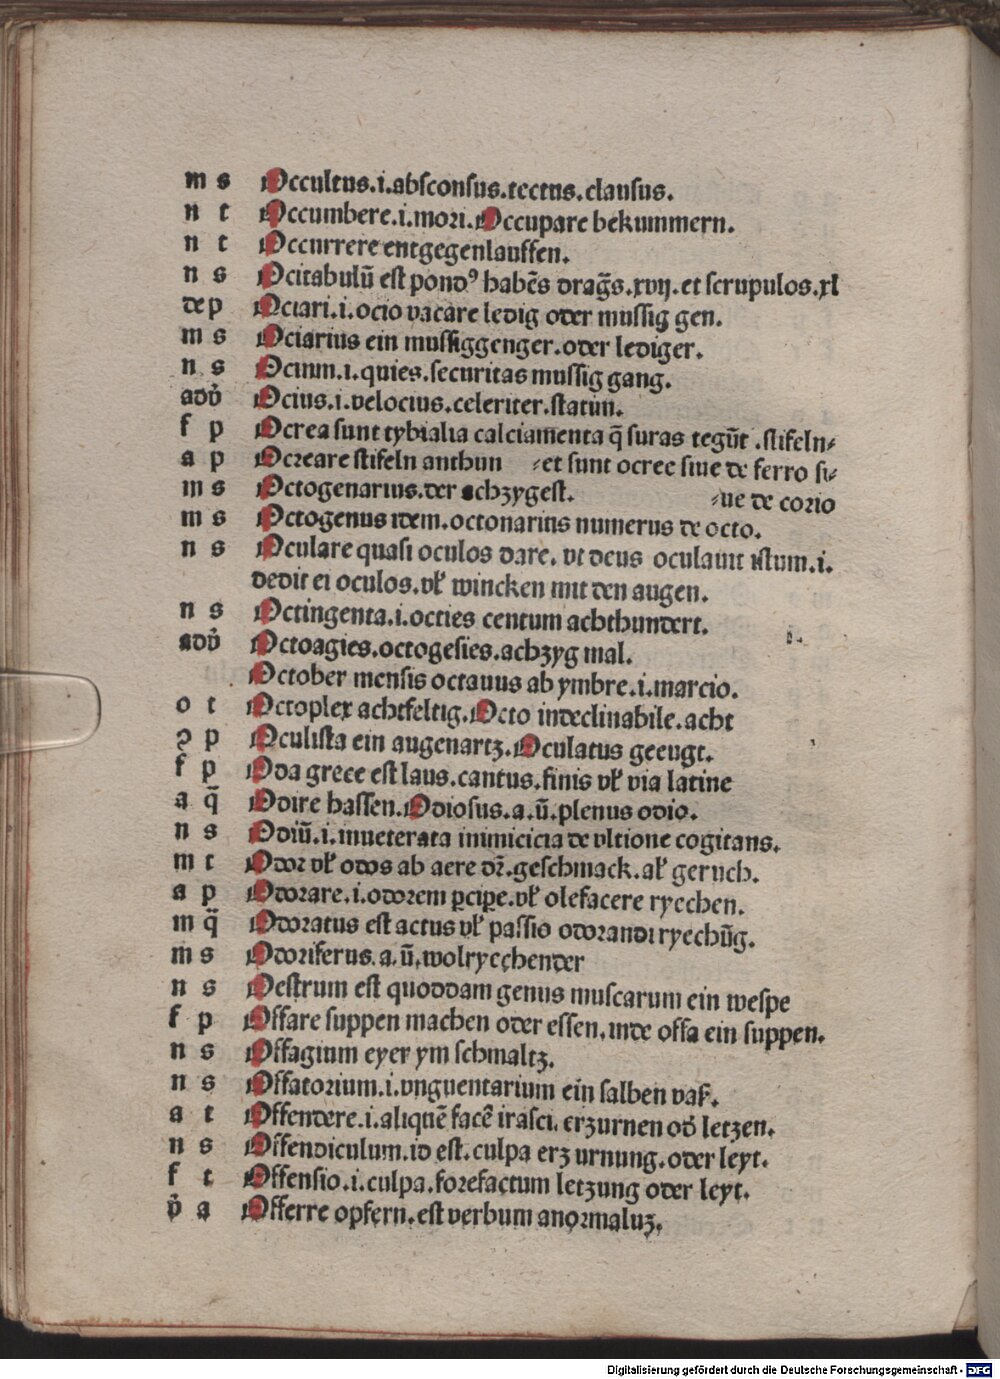 m s Occultus.i.absconsus.tectus.clausus.
n t Occumbere.i.mori.Occupare bekummern.
n t Occurrere entgegenlauffen.
n s Ocitabulū est pondꝰ habēs dragᷓs.xvij.et scrupulos.xl
dep Ociari.i.ocio vacare ledig oder mussig gen.
m s Ociarius ein mussiggenger.oder lediger.
n s Ocium.i.quies.securitas mussig gang.
adv̉ Ocius.i.velocius.celeriter.statim.
f p Ocrea sunt tybialia calciamenta q̄ suras tegūt .stifeln⸗
a p Ocreare stifeln anthun ⸗et sunt ocree siue de ferro si⸗
m s Octogenarius.der achzygest. ⸗ue de corio
m s Octogenus idem.octonarius numerus de octo.
n s Oculare quasi oculos dare. vt deus oculauit istum.i.
dedit ei oculos.vł wincken mit den augen.
n s Octingenta.i.octies centum achthundert.
adv̉ Octoagies.octogesies.achzyg mal.
October mensis octauus ab ymbre.i.marcio.
o t Octoplex achtfeltig.Octo indeclinabile.acht
ꝯ p Oculista ein augenartz.Oculatus geeugt.
f p Oda grece est laus.cantus.finis vł via latine
a q̄ Odire hassen.Odiosus.a.ū.plenus odio.
n s Odiū.i.inueterata inimicicia de vltione cogitans.
m t Odor vł odos ab aere dr̄.geschmack.ał geruch.
a p Odorare.i.odorem ꝑciꝑe.vł olefacere ryechen.
m q̄ Odoratus est actus vł passio odorandi ryechūg.
m s Odoriferus.a.ū.wolryechender
n s Oestrum est quoddam genus muscarum ein wespe
f p Offare suppen machen oder essen.inde offa ein suppen.
n s Offagium eyer ym schmaltz.
n s Offatorium.i.vnguentarium ein salben vaß.
a t Offendere.i.aliquē facē irasci.erzurnen od̉ letzen.
n s Offendiculum.id est.culpa erzurnung.oder leyt.
f t Offensio.i.culpa.forefactum letzung oder leyt.
v̉ a Offerre opfern.est verbum anormaluʒ.
Digitalisierung gefördert durch die Deutsche Forschungsgemeinschaft - DFG